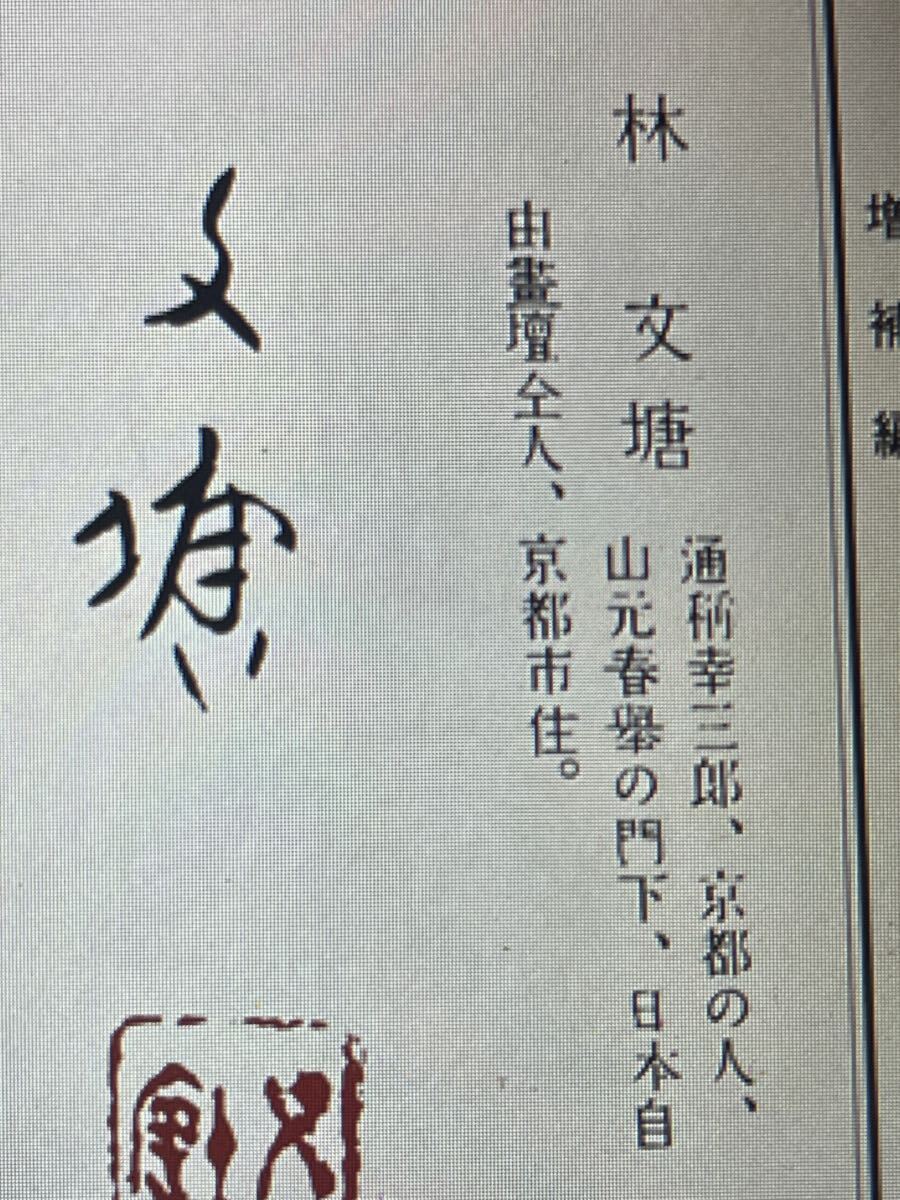 増補編
林文塘
通稱幸三郎、京都の人、
山元春擧の門下、日本自
由畫壇仝人、京都市住。
文塘